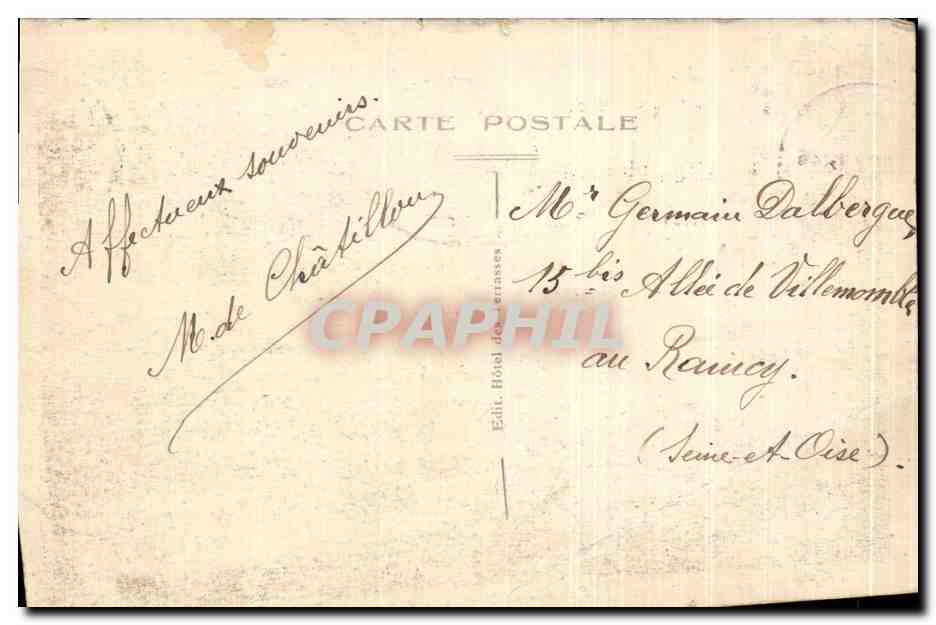 CARTE POSTALE
Affectueux souvenirs.
M. de Châtillon
Edit. Hôtel des Terrasses
Mr Germain Dalbergue
15 bis Allée de Villemomble
au Raincy.
(Seine-et-Oise).
CPAPHIL